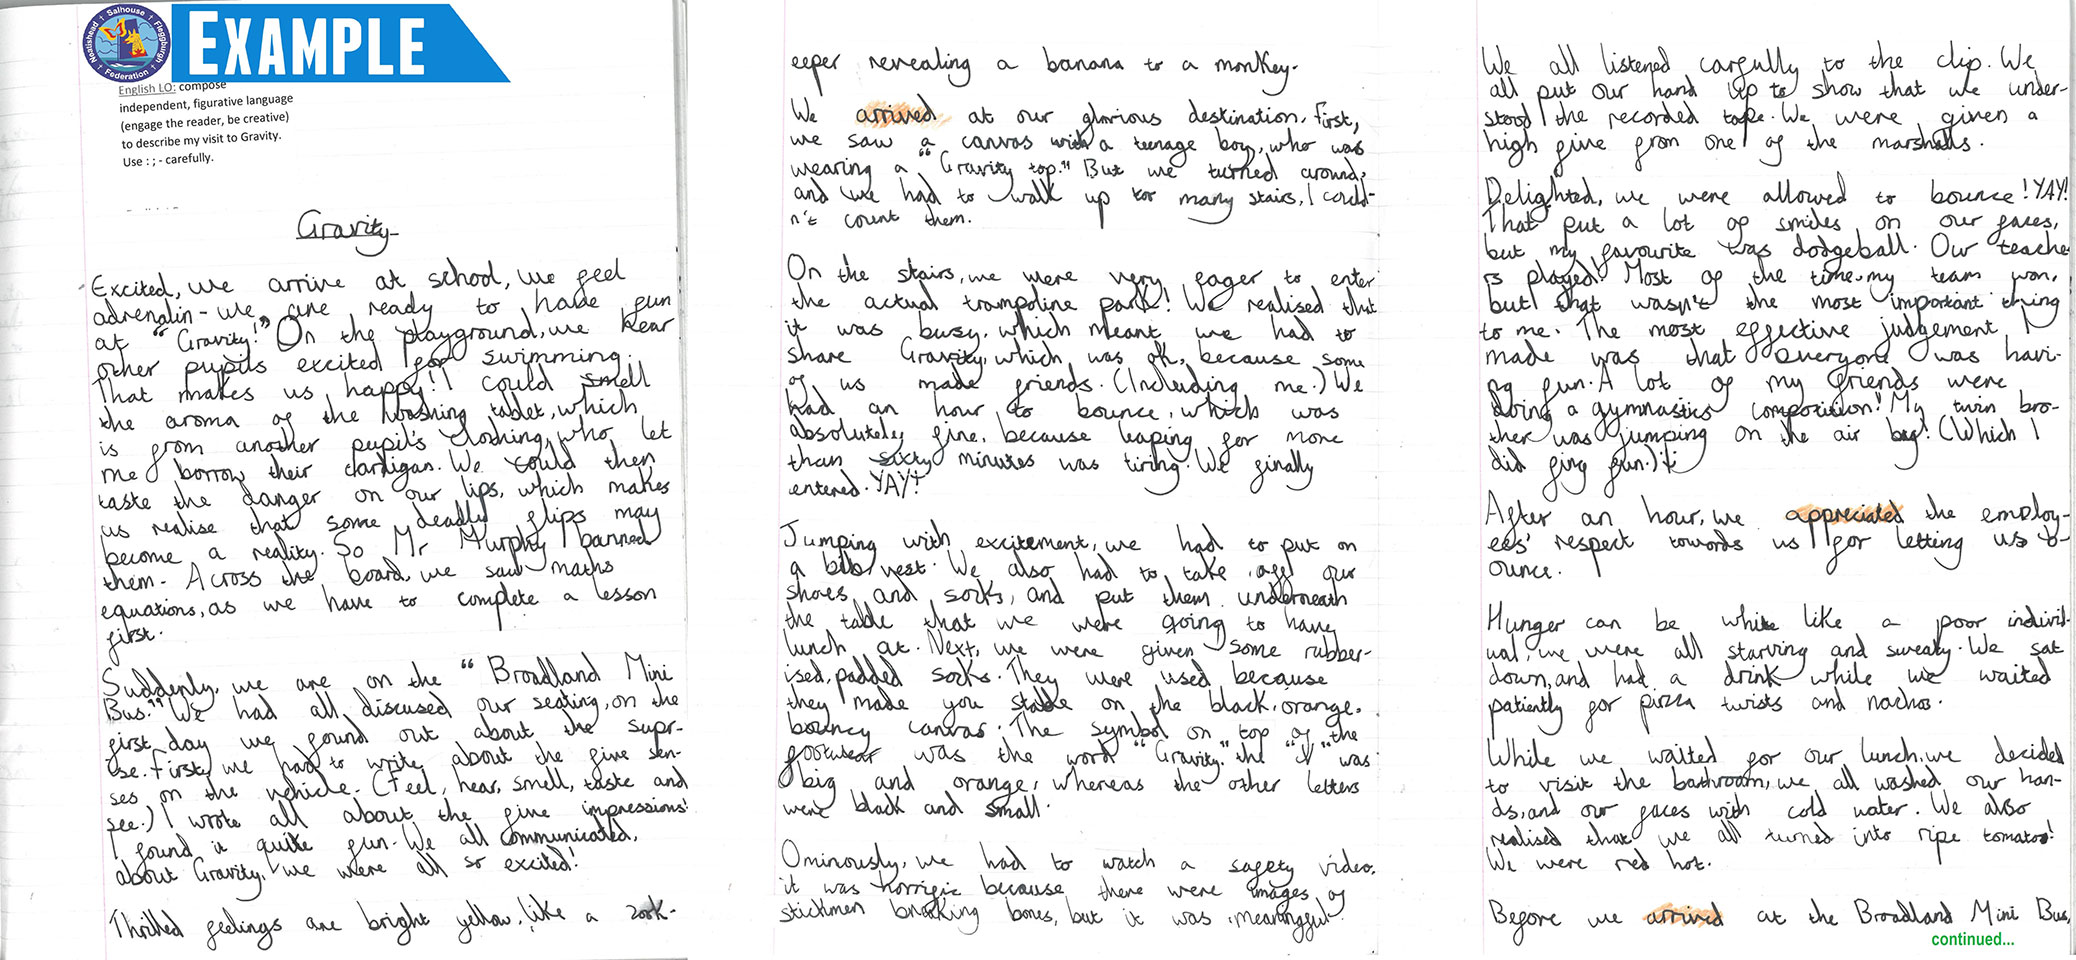 Neatishead † Salhouse † Fleggburgh † Federation †
EXAMPLE
English LO: compose
independent, figurative language
(engage the reader, be creative)
to describe my visit to Gravity.
Use : ; - carefully.
Gravity
Excited, we arrive at school, we feel
adrenglin - we are ready to have fun
at "Gravity!" On the playground, we hear
other pupils excited for swimming.
That makes us happy! I could smell
the aroma of the washing tablet, which
is from another pupil's clothing, who let
me borrow their cardigan. We could then
taste the danger on our lips, which makes
us realise that some deadly flips may
become a reality. So Mr Murphy banned
them. Across the board, we saw maths
equations, as we have to complete a lesson
first.
Suddenly, we are on the "Broadland Mini
Bus." We had all discused our seating, on the
first day we found out about the supr-
ise. First, we had to write about the five sen-
ses on the vehicle. (Feel, hear, smell, taste and
see.) I wrote all about the five impressions!
I found it quite fun. We all communicated,
about Gravity, we were all so excited!
Thrilled feelings are bright yellow, like a zook-
eeper revealing a banana to a monkey.
We arrived at our glorious destination, first,
we saw a canvas with a teenage boy, who was
wearing a "Gravity top." But we turned around,
and we had to walk up too many stairs, I could-
n't count them.
On the stairs, we were very eager to enter
the actual trampoline park! We realised that
it was busy, which meant we had to
share Gravity, which was ok, because some
of us made friends. (Including me.) We
had an hour to bounce, which was
absolutely fine, because leaping for more
than sixty minutes was tiring. We finally
entered. YAY!
Jumping with excitement, we had to put on
a bib vest. We also had to take off our
shoes and socks, and put them underneath
the table that we were going to have
lunch at. Next, we were given some rubber-
ised, padded socks. They were used because
they made you stable on the black, orange,
bouncy canvas. The symbol on top of the
footwear was the word "Gravity." the "V" was
big and orange, whereas the other letters
were black and small.
Ominously, we had to watch a safety video,
it was horrific because there were images of
stickmen breaking bones, but it was meaningful.
We all listened carfully to the clip. We
all put our hand up to show that we under-
stood the recorded tape. We were given a
high five from one of the marshalls.
Delighted, we were allowed to bounce! YAY!
That put a lot of smiles on our faces,
but my favourite was dodgeball. Our teache
rs played! Most of the time, my team won,
but that wasn't the most important thing
to me. The most effective judgement I
made was that everyone was havi-
ng fun. A lot of my friends were
doing a gymnastics compotition! My twin bro-
ther was jumping on the air bag! (Which I
did find fun.)
After an hour, we appreciated the employ-
ees' respect towards us for letting us b-
ounce.
Hunger can be white like a poor individ-
ual, we were all starving and sweaty. We sat
down, and had a drink while we waited
patiently for pizza twists and nachos.
While we waited for our lunch, we decided
to visit the bathroom, we all washed our han-
ds, and our faces with cold water. We also
realised that we all turned into ripe tomatos!
We were red hot.
Before we arrived at the Broadland Mini Bus,
continued...